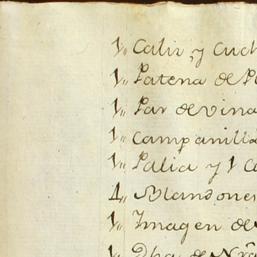 1,, Caliz, y Cuch
1,, Patena de P
1,, Par de vina
1,, Campanilla
1,, Palia y 1 C
4,, Blandones
1,, Imagen de
1,, Dha. de Nrâ